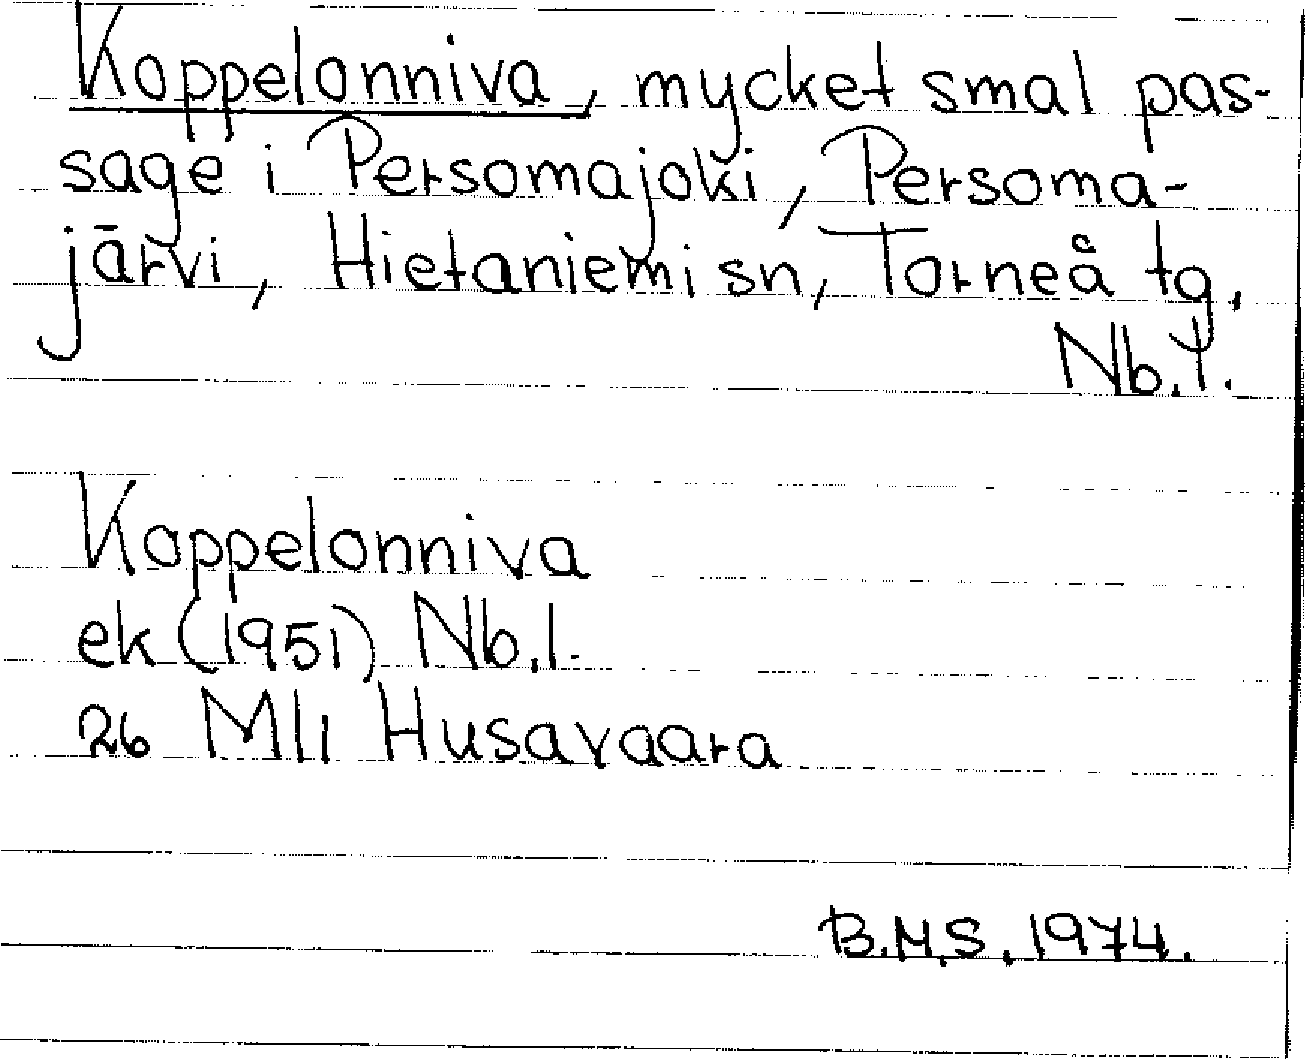 Koppelonniva, mycket smal pas-
sage i Persomajoki, Persoma-
järvi, Hietaniemi sn, Torneå tg,
Nb.l.
Koppelonniva
ek (1951) Nb.l.
26 Mli Husavaara
B.M.S. 1974.